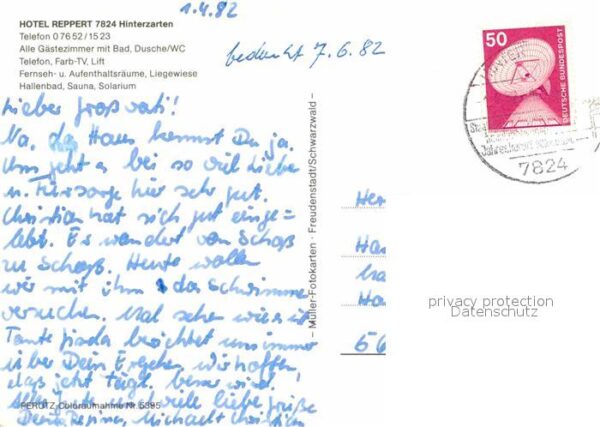 1.4.82
HOTEL REPPERT 7824 Hinterzarten
Telefon 0 76 52 / 15 23
Alle Gästezimmer mit Bad, Dusche/WC
Telefon, Farb-TV, Lift
Fernseh- u. Aufenthaltsräume, Liegewiese
Hallenbad, Sauna, Solarium
bedankt 7.6.82
50
DEUTSCHE BUNDESPOST
7824
Lieber Großvati!
Na, das Haus kennst Du ja.
Uns geht es bei so viel Liebe
u. Fürsorge hier sehr gut.
Christian hat sich gut einge=
lebt. Es wandert von Schoß
zu Schoß. Heute wollen
wir mit ihm das Schwimmen
versuchen. Mal sehen wie es ist
Tante berichtet uns immer
über Dein Ergehen, wir hoffen,
daß jetzt besser wird!
Alles Gute und viele liebe Grüße
Michael + Christian
PERUTZ-Coloraufnahme Nr. 5395
– Müller-Fotokarten · Freudenstadt/Schwarzwald –
Her
Ha
Ha
56
privacy protection
Datenschutz